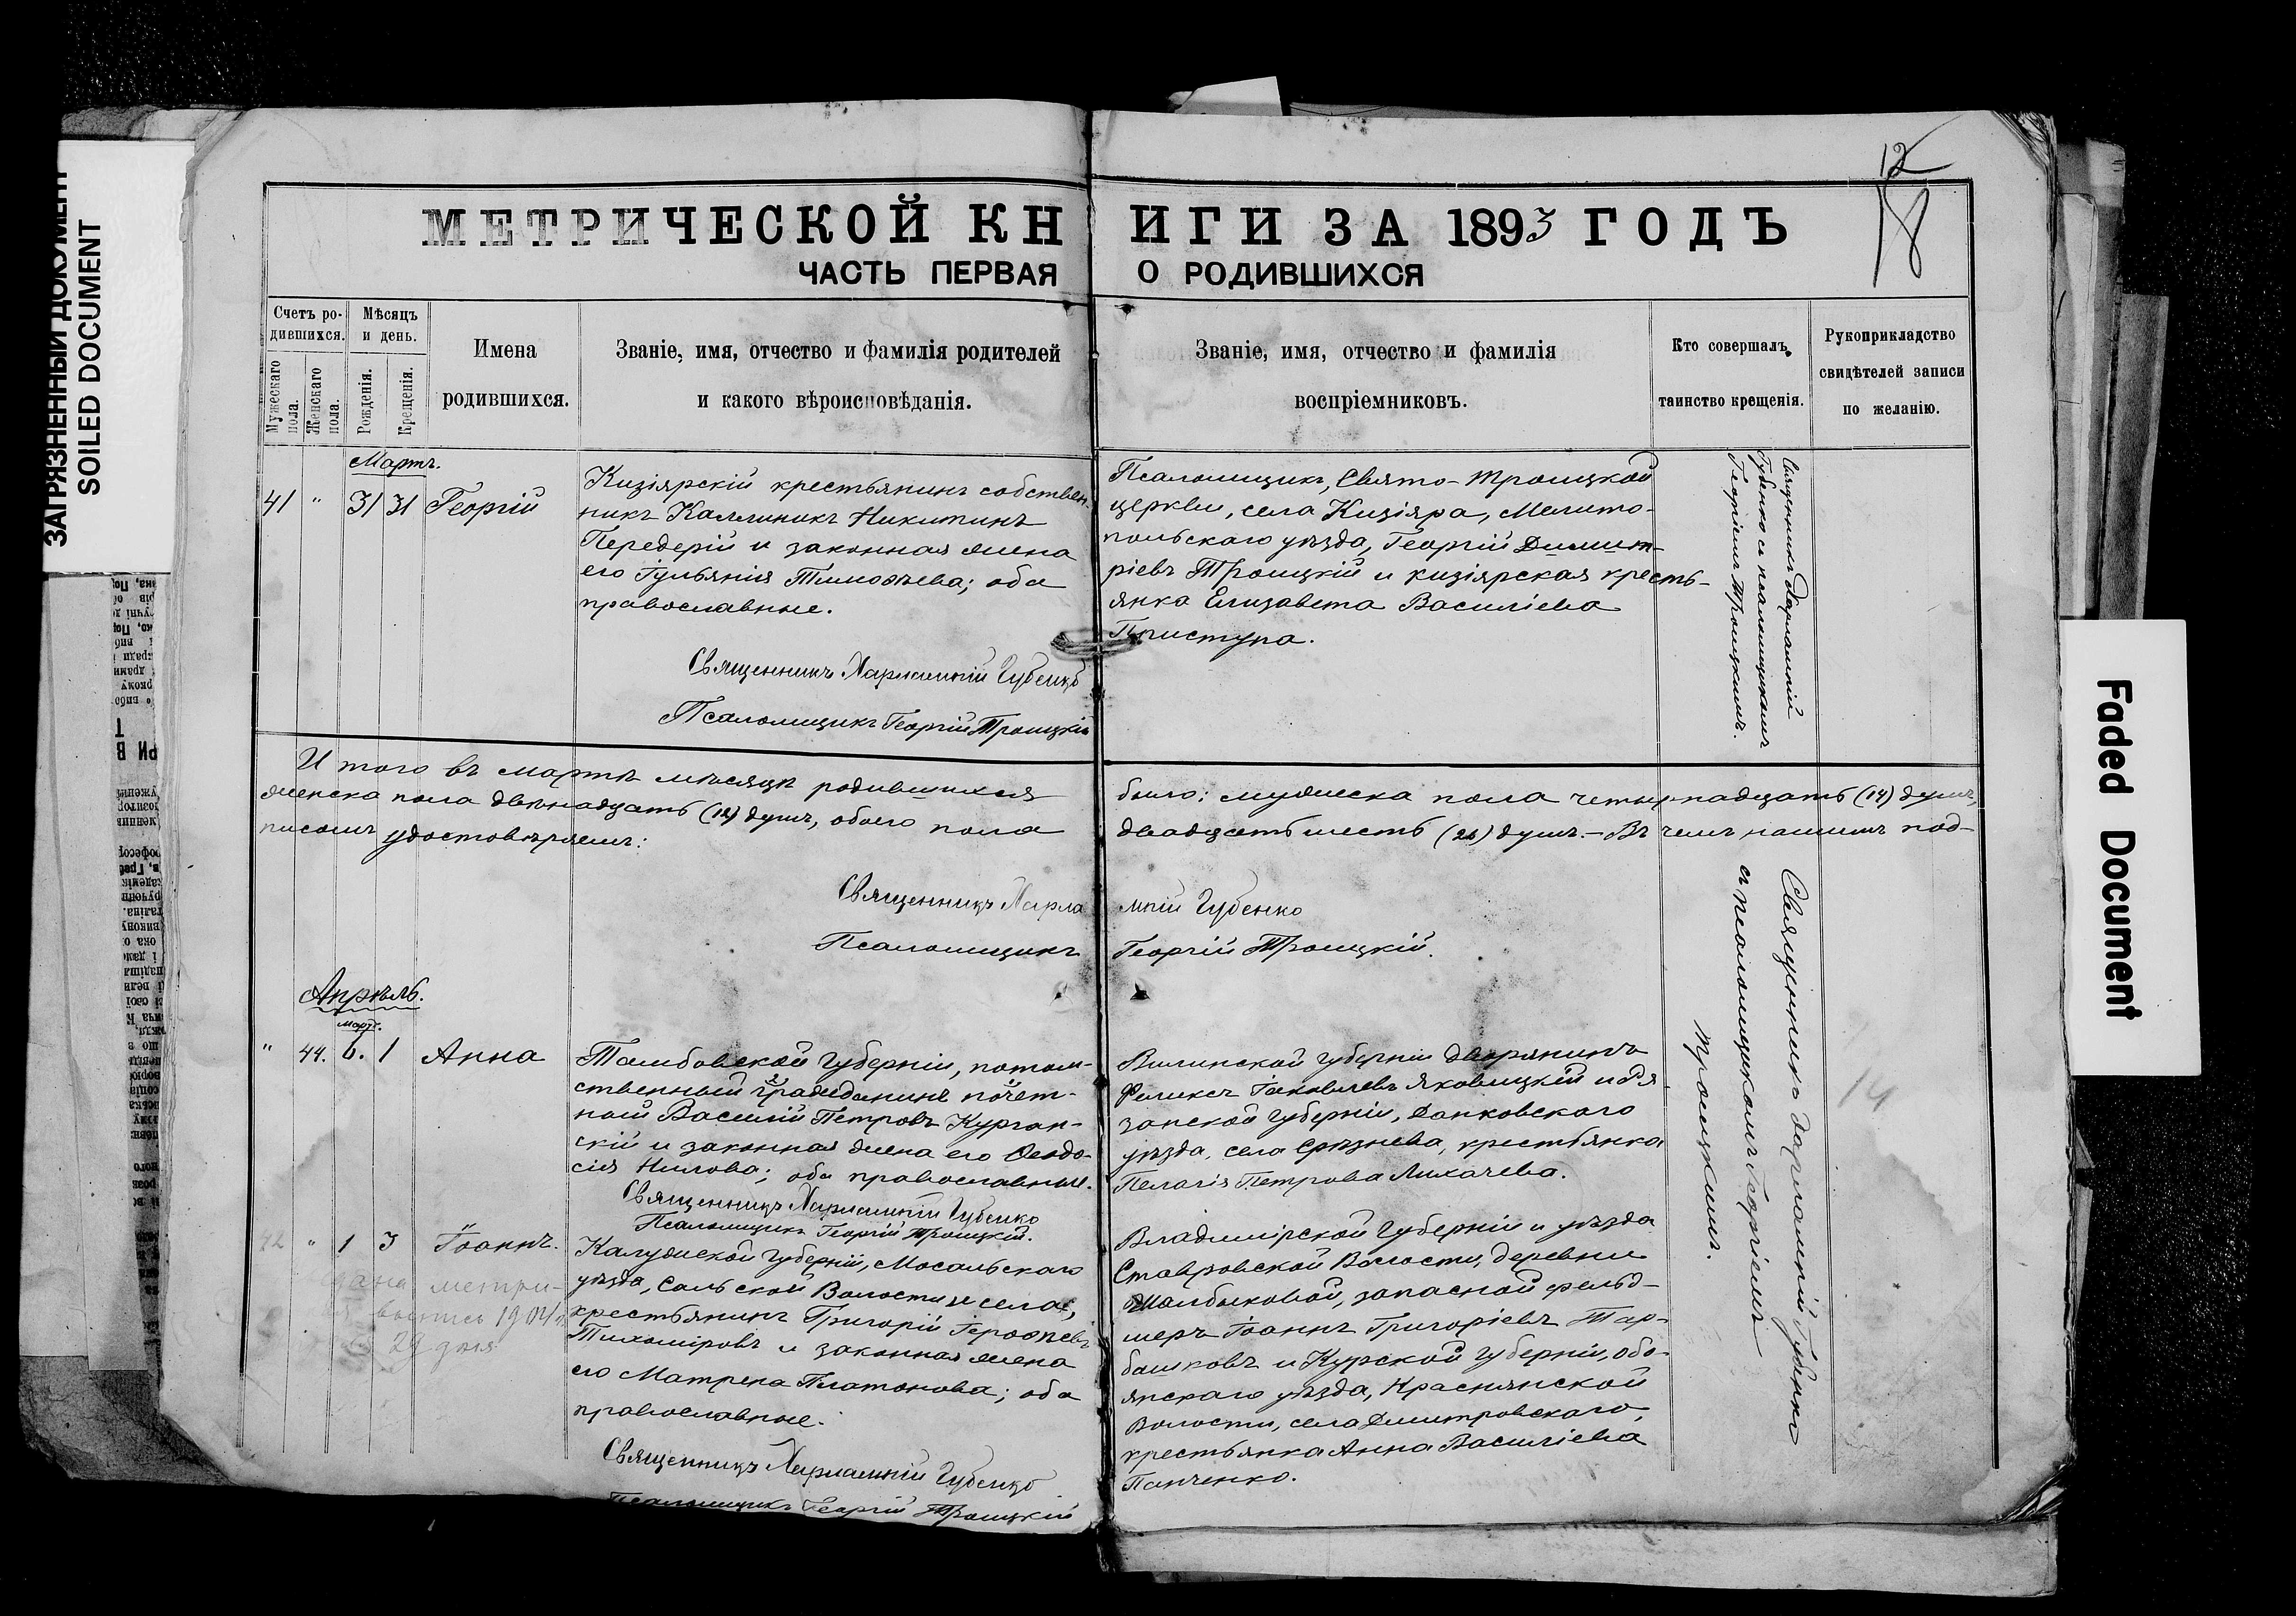 ЗАГРЯЗНЕННЫЙ ДОКУМЕНТ
SOILED DOCUMENT
12
18
МЕТРИЧЕСКОЙ КНИГИ ЗА 1893 ГОДЪ
ЧАСТЬ ПЕРВАЯ О РОДИВШИХСЯ
Счетъ ро-
дившихся.
Мужескаго
пола.
Женскаго
пола.
Мѣсяцъ
и день.
Рожденія.
Крещенія.
Имена
родившихся.
Званіе, имя, отчество и фамилія родителей
и какого вѣроисповѣданія.
Званіе, имя, отчество и фамилія
воспріемниковъ.
Кто совершалъ
таинство крещенія.
Рукоприкладство
свидѣтелей записи
по желанію.
Мартъ.
41 " 31 31 Георгій
Кизіярскій крестьянинъ собствен-
никъ Каллиникъ Никитинъ
Передерій и законная жена
его Іульянія Тимоѳеева; оба
православные.
Священникъ Харлампій Губенко
Псаломщикъ Георгій Троицкій
Псаломщикъ, Свято-Троицкой
церкви, села Кизіяра, Мелито-
польскаго уѣзда, Георгій Димит-
ріевъ Троицкій и кизіярская кресть-
янка Елизавета Василіева
Приступа.
Священникъ Харлампій
Губенко съ псаломщикомъ
Георгіемъ Троицкимъ.
Итого въ мартѣ мѣсяцѣ родившихся было: мужеска пола четырнадцать (14) душъ,
женска пола двѣнадцать (12) душъ, обоего пола двадцать шесть (26) душъ. – Въ чемъ нашимъ под-
писомъ удостовѣряемъ:
Священникъ Харлампій Губенко
Псаломщикъ Георгій Троицкій.
Апрѣль.
мартъ.
" 44. 6. 1 Анна
Тамбовской губерніи, потом-
ственный гражданинъ почет-
ный Василій Петровъ Курган-
скій и законная жена его Ѳеодо-
сія Нилова; оба православные.
Священникъ Харлампій Губенко
Псаломщикъ Георгій Троицкій.
Виленской губерніи дворянинъ
Феликсъ Іаковлевъ Яковицкій и Ря-
занской губерніи, Данковскаго
уѣзда, села Срезнева, крестьянка
Пелагія Петрова Лихачева.
Священникъ Харлампій Губенко
съ псаломщикомъ Георгіемъ
Троицкимъ.
14
42 " 1 3 Іоаннъ.
метри-
выпись 1904
29 дня
Калужской губерніи, Мосальскаго
уѣзда, Сальской Волости и села,
крестьянинъ Григорій Героѳеевъ
Тихоміровъ и законная жена
его Матрена Платонова; оба
православные.
Священникъ Харлампій Губенко
Псаломщикъ Георгій Троицкій
Владимірской губерніи и уѣзда
Ставровской Волости, деревни
Шалдыковой, запасной фельд-
шеръ Іоаннъ Григоріевъ Тар-
башковъ и Курской губерніи, обо-
янскаго уѣзда, Краснянской
Волости, села Димитровскаго,
крестьянка Анна Василіева
Панченко.
Faded Document